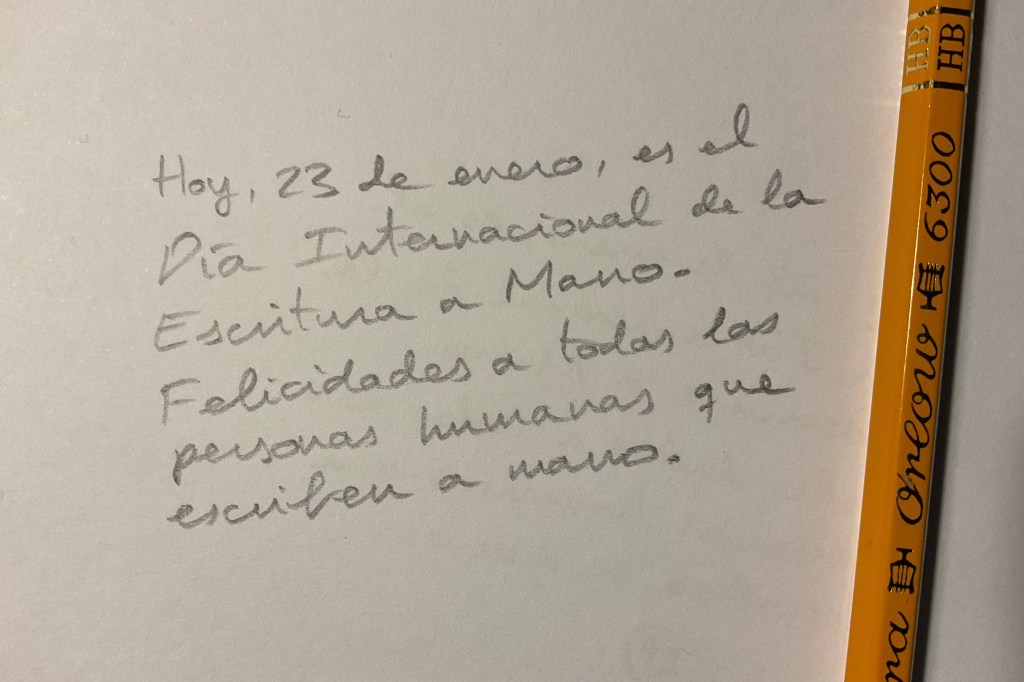 Hoy, 23 de enero, es el
Día Internacional de la
Escritura a Mano.
Felicidades a todas las
personas humanas que
escriben a mano.
HB
HB
6300